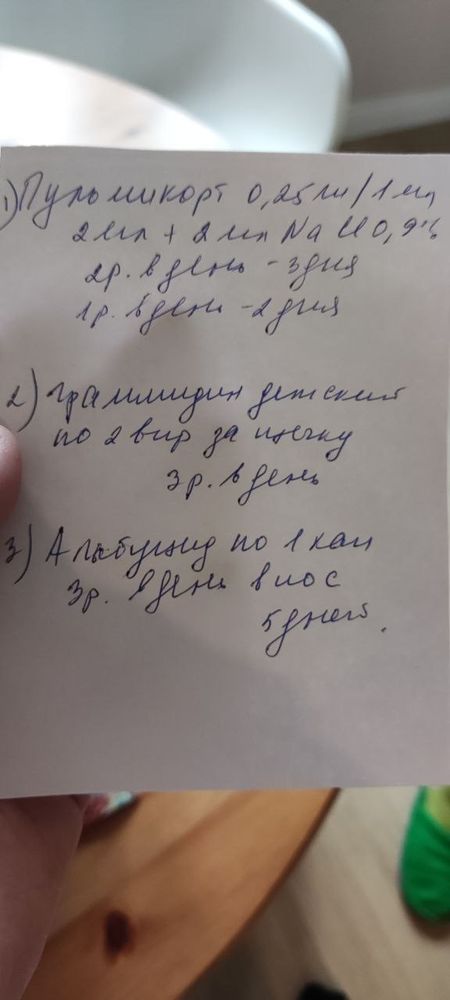 1) Пульмикорт 0,25мг/1мл
2мл + 2мл NaCl 0,9%
2р. в день - 3дня
1р. в день - 2 дня
2) Граммидин детский
по 2 впр за щечку
3р. в день
3) Альбуцид по 1 кап
3р. в день в нос
5 дней.